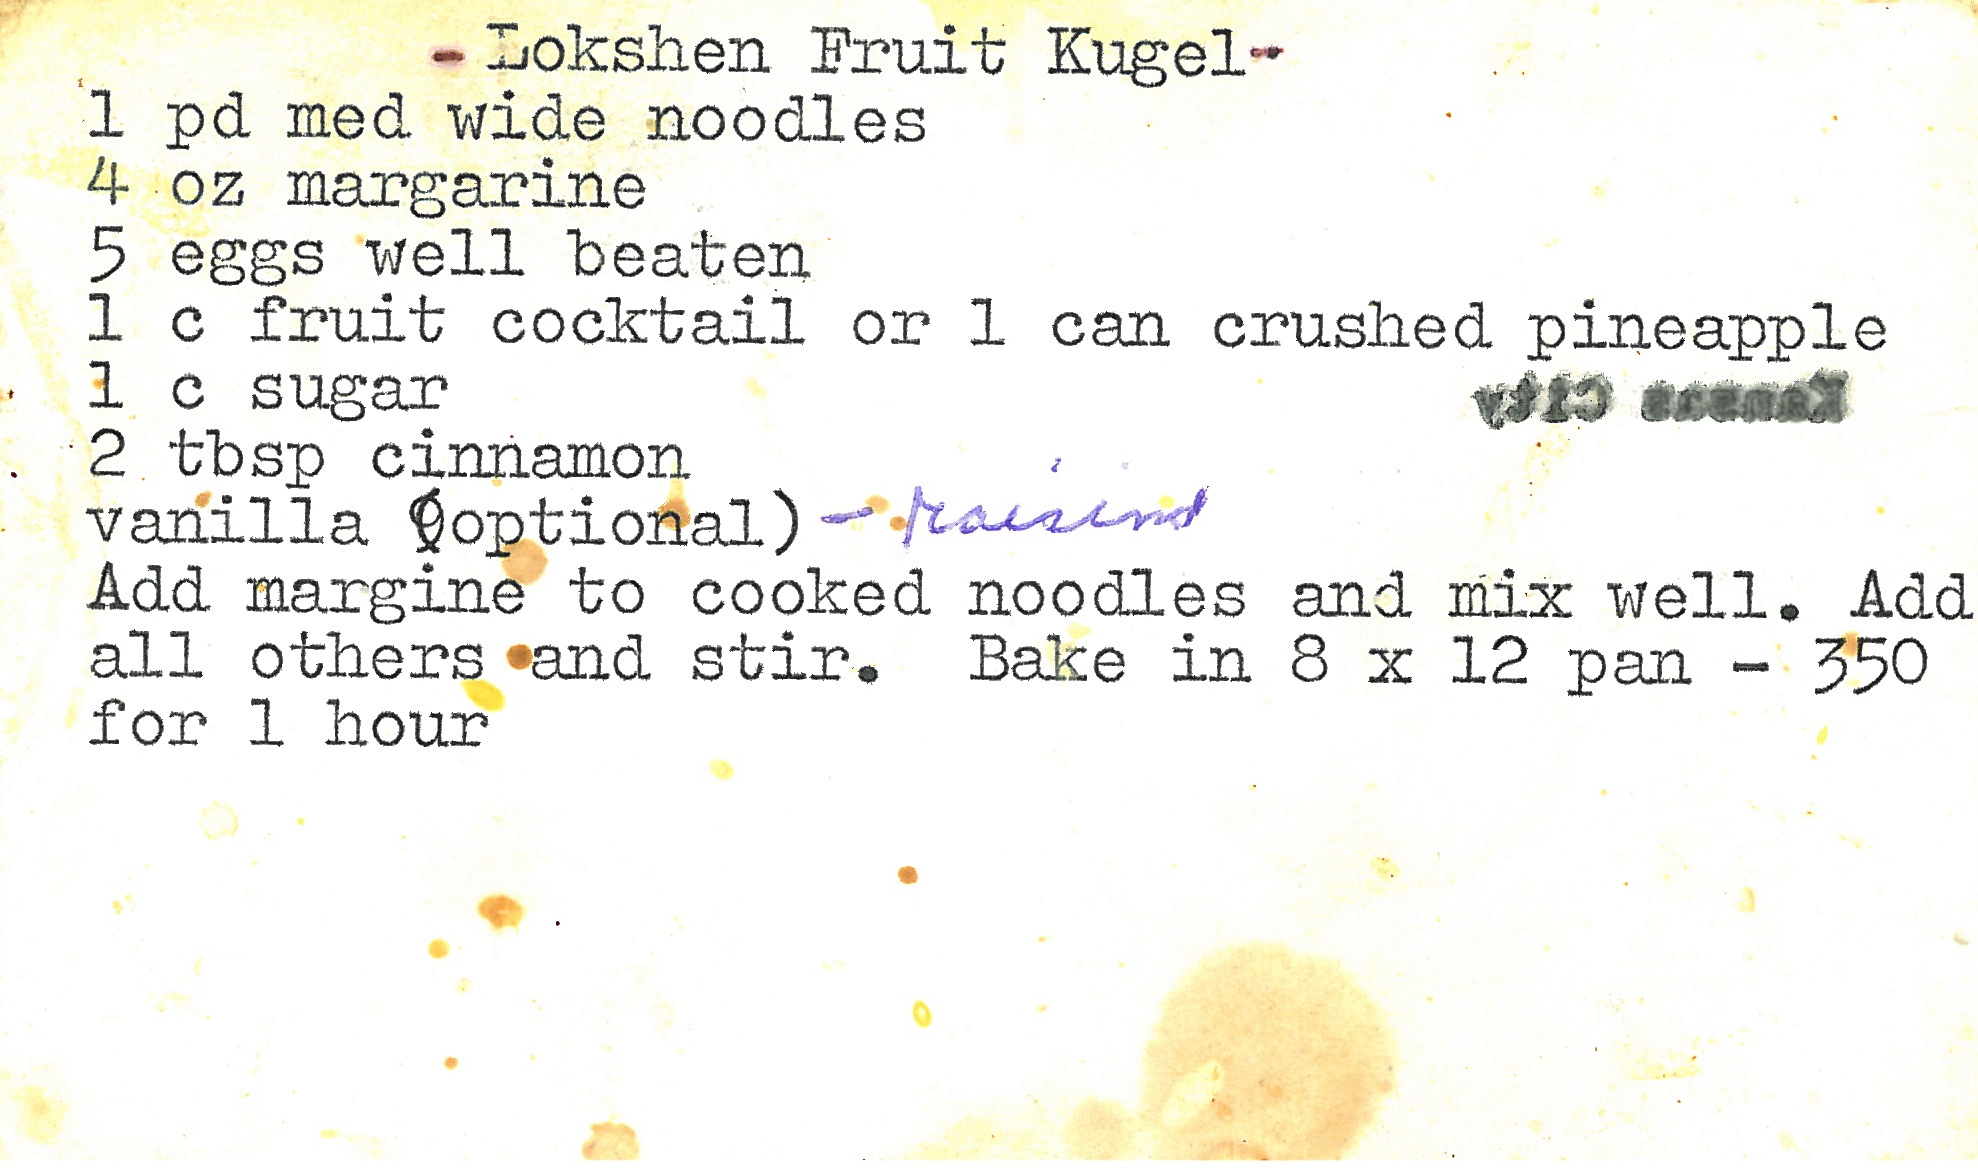 - Lokshen Fruit Kugel-
1 pd med wide noodles
4 oz margarine
5 eggs well beaten
1 c fruit cocktail or 1 can crushed pineapple
1 c sugar
Kansas City
2 tbsp cinnamon
vanilla (optional) - raisins
Add margine to cooked noodles and mix well. Add
all others and stir. Bake in 8 x 12 pan - 350
for 1 hour